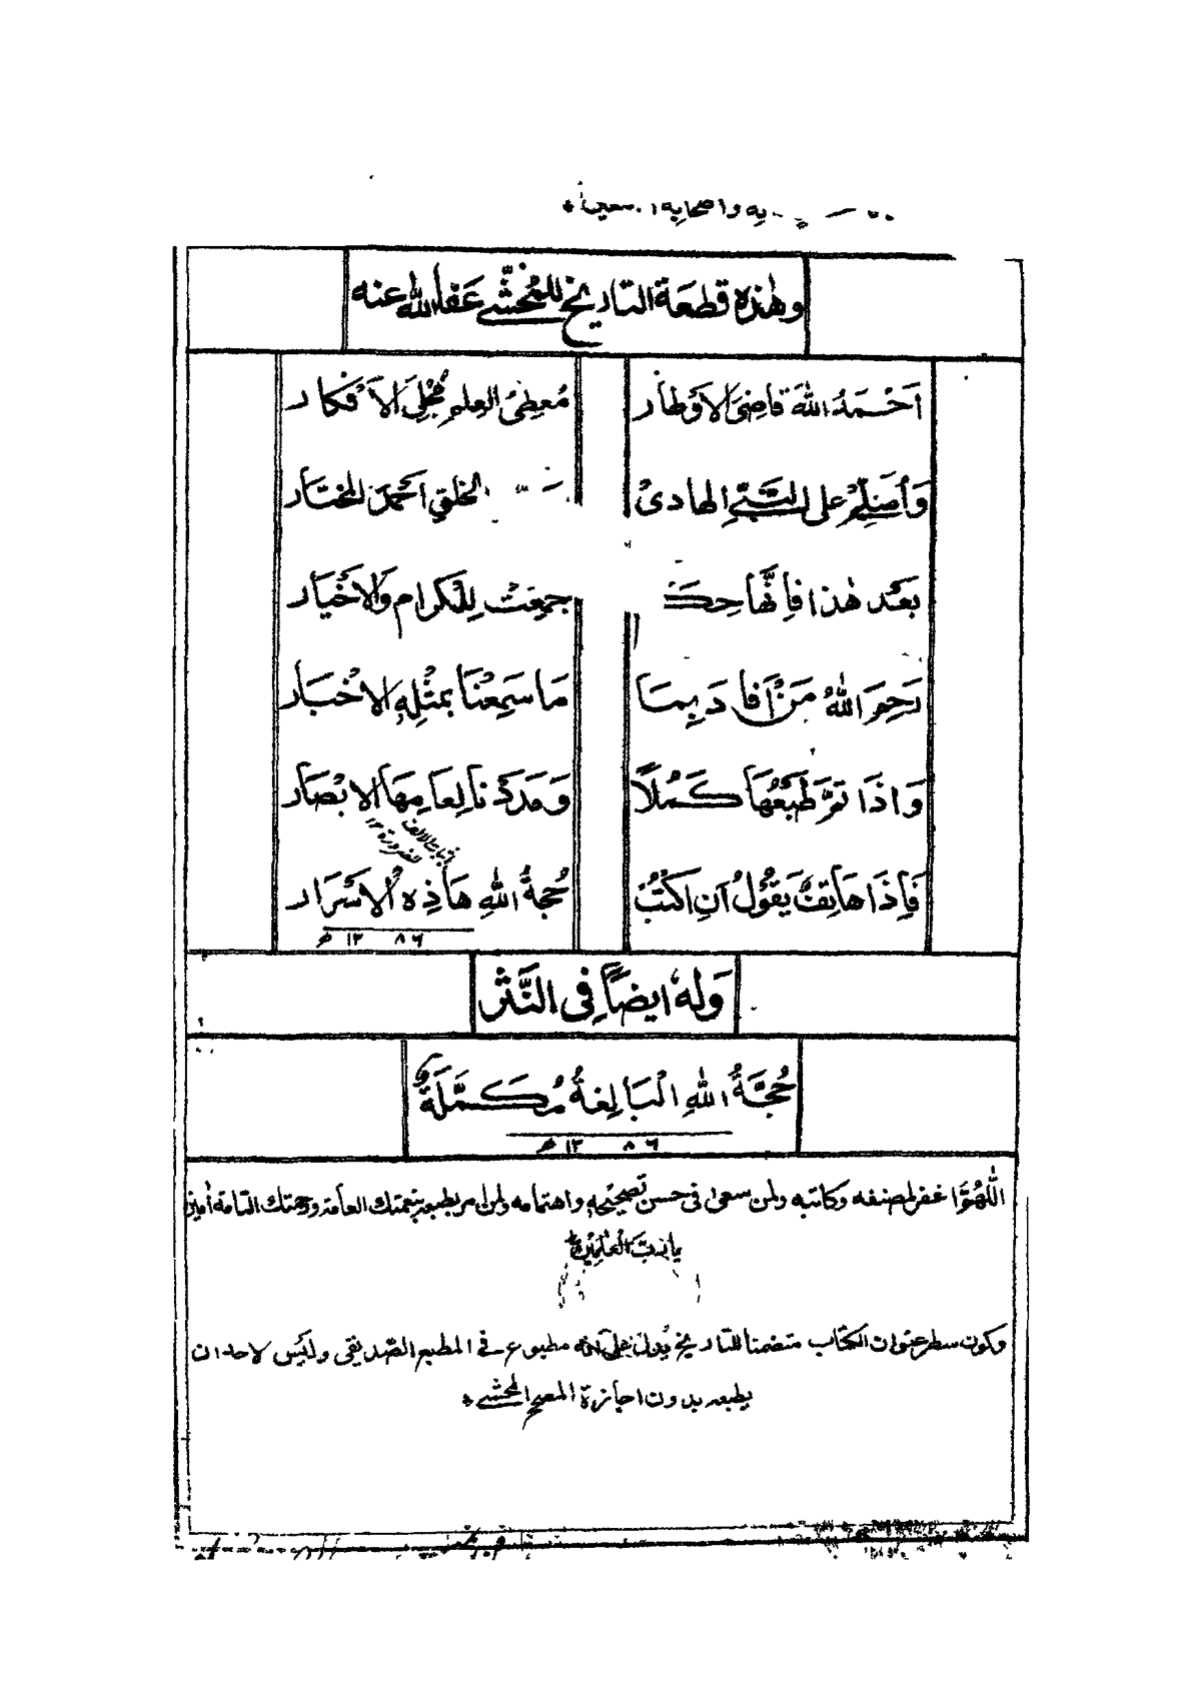 واصحابه
وهذه قطعة التاريخ للمُحَشّي عَفا الله عنه
اَحْمَدُ اللهَ قاضِىَ الاَوْطار مُعطِىُ العِلم مُجْلِىَ الاَفْكار
وَاُصَلِّىْ على النَّبِىِّ الهادىْ الخلقِ اَحْمَدَ المختار
بَعْد هٰذا فاِنَّها جمعت لِلْكرام وَالاَخْيار
رَحِمَ اللهُ مَنْ اَفادَ بِمَا مَا سَمِعْنَا بمثْلِهِ الاخبَار
وَاِذَا تَمَّ طَبْعُهَا كَمُلاً وَمَدَدْنا لِعامِهَا الابْصَار
باثبات الالف
لضرورة ١٢
فَاِذَا هَاتِفٌ يَقُوْلُ اَنِ اكْتُبْ حُجةُ اللهِ هَاذِهِ الْاَسْرَار
١٢٨٦ هـ
وَله ايضاً فِى النَّثْر
حُجَّةُ اللهِ الْبَالِغةُ مُكَمَّلَةٌ
١٢٨٦ هـ
اللّٰهُمَّ اغفر لمصنفه وكاتبه ولمن سعىٰ فى حسن تصحيحه واهتمامه ولمن امر بطبعه بنعمتك العامة ورحمتك التامة اٰمين
يا رَبَّ الْعٰلَمِيْنَ
وكون سطر عنوان الكتاب متضمنا للتاريخ يدل على انه مطبوع فى المطبع الصّديقى وليْس لاحد ان
يطبعه بدون اجازة المصحح المحشّى